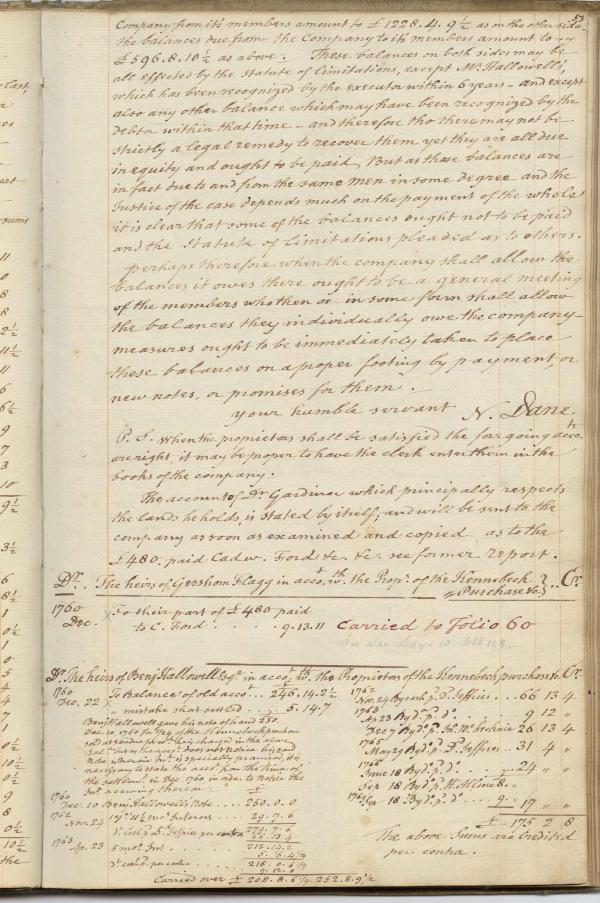 53
Company from it's members amount to £1228.4.9½ as on the other side
the balances due from the Company to it's members amount to
£596.8.10½ as above. These balances on both sides may be
all effected by the Statute of limitations, except Mr. Hallowell's,
which has been recognized by the executor within 6 years - and except
also any other balance which may have been recognized by the
Debtor within that time - and therefore tho there may not be
strictly a legal remedy to recover them yet they are all due
in equity and ought to be paid, But as these balances are
in fact due to and from the same men in some degree and the
Justice of the case depends much on the payment of the whole
it is clear that some of the balances ought not to be paid
and the Statute of limitations pleaded as to others.
perhaps therefore when the company shall allow the
balances it owes there ought to be a general meeting
of the members who then or in some form shall allow
the balances they individually owe the company-
measures ought to be immediately taken to place
these balances on a proper footing by payment, or
new notes, or promises for them.
your humble servant N. Dane.
P. S. When the proprietors shall be satisfied the foregoing accots.
are right, it may be proper to have the clerk enter them in the
books of the company.
The account of Dr. Gardiner which principally respects
the lands he holds, is stated by itself; and will be sent to the
company as soon as examined and copied as to the
£480, paid Cadw. Ford &c. &c. see former report.
Dr. The heirs of Gershom Flagg in accot. wth. the Propr. of the Kennebeck Purchase &c. Cr.
1760 Dec. X To their part of £480 paid
to C. Ford 9.13.11 Carried to Folio 60
See also Ledger
Dr. The heirs of Benj Hallowell Esqr. in accot. wth. the Proprietors of the Kennebeck purchase &c Cr
1760 Dec. 22 To Balance of old acco. 246.14.2½
X " mistake that settled 5.14.7
Benj Hallowell gave his note of hand 250.
1760 Dec. 10 Benj Hallowells Note 250.0.0
1762 Nov. 24 int. 29.7.6
dt. cash pr. D. Jeffries per contra 279.7.6
66.13.4
1763 Ap. 23 5 mos. Int. 212.14.2
5.6.4½
dt. cash pr. contra 218.0.6½
9.12.0
Carried over £ 208.8.6½ 252.8.9½
1762 Nov. 24 By cash pr. D. Jeffries 66 13 4
1763 Ap 23 By do. pr. do. 9 12 "
Dec 7 By do. pr. Mc.kechnie 26 13 4
1765 May 29 By do. pr. D. Jeffries 31 4 "
June 18 By do. pr. do. 24 " "
Sep 18 By do. pr. 8. "
Sep 18 By do. pr. do. 9. 17 " "
£ 175 2 8
The above Sums are Credited
per contra.